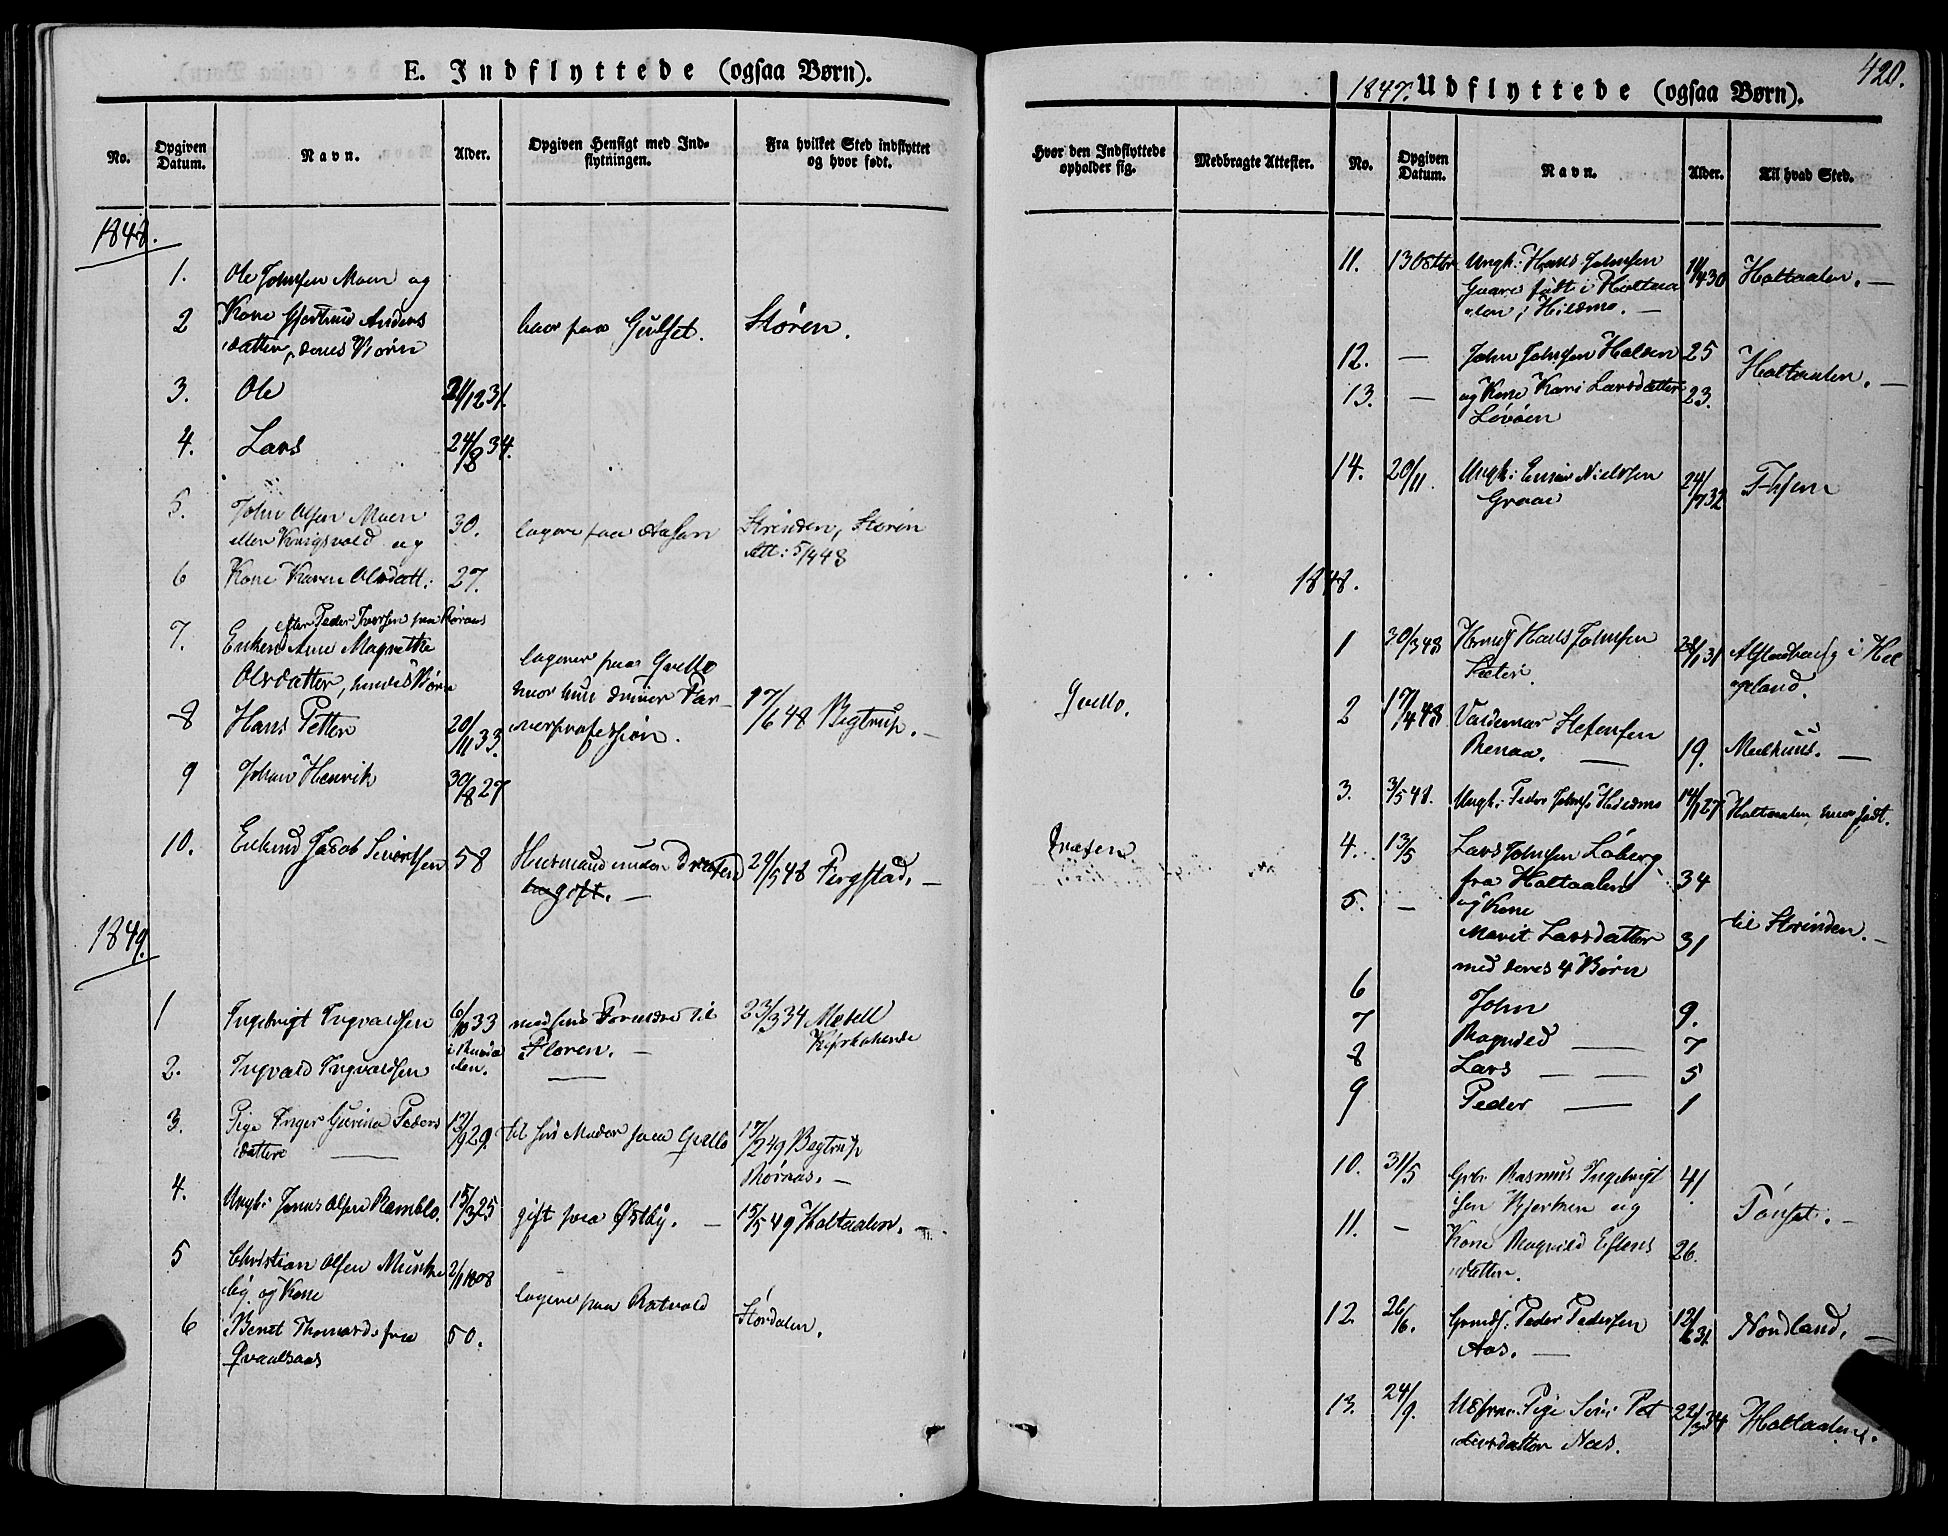 E. Indflyttede (ogsaa Børn).
No.
Opgiven Datum.
Navn.
Alder.
Opgiven Hensigt med Indflytningen.
Fra hvilket Sted indflyttet og hvor født.
1848.
1. Ole Johnsen Moen og
2 Kone Gjertrud Anders
datter, deres Børn
boer paa Gulset. Støren.
3. Ole 21/12 31.
4. Lars 24/8 34.
5. John Olsen Moen 30. logere paa Aasen Strinden, Støren
eller Kongsvold og Att: 5/4 48
6 Kone Karen Olsdatt: 27.
efter Peder Iversen fra Røraas
7. Enken Ane Magrethe
Olsdatter, hendes Børn
logerer paa Gvello
hvor hun driver Far
verprofession. 17/6 48 Bigtrup.
8 Hans Petter 20/11 33.
9 Johan Henrik 30/8 27
10. Enkmd Jacob Sivertsen 58 Huusmand under Draxten 29/5 48
gift.
1849.
1 Ingebrigt Ingvaldsen 6/10 33 med sine Forældre til 23/3 34 Meldal
i Floren.
2. Ingvald Ingvaldsen
3. Pige Inger Gurina Peders 12/9 29. til sin Moder paa Gvello 17/2 49 Bigtrup
datter Røraas.
4. Ungk: Jens Olsen Ramblo. 15/3 25 gift paa Østby. 15/5 49 Holtaalen.
5 Christian Olsen Munke 2/1 1808
og Kone logerer paa Rotvold Stordalen.
6 Beret Thomasd: fra 50.
Qvaalsaas
420.
1847. Udflyttede (ogsaa Børn).
Hvor den Indflyttede opholder sig.
Medbragte Attester.
No.
Opgiven Datum.
Navn.
Alder.
Til hvad Sted.
11. 13 Octbr Ungk: Hans Johnsen 11/4 30 Holtaalen.
Gaare født i Holtaa
len i Hildmo.
12. — John Johnsen Holden 25 Holtaalen.
13. — og Kone Kari Larsdatter 23.
Løvøen
14. 20/11. Ungk: Einar Nielssen 24/7 32
Graae
1848.
1 30/3 48 Hans Johnsen Alstadhaug i Hel
Sæter. geland.
Gvello.
2 17/4 48 Valdemar Stefensen
Renaa. 19. Meelhuus.
3. 3/5 48. Ungk: Peder Johns: Hildmo 14/1 27 Holtaalen hvor født.
Draxten
4. 13/5 Lars Johnsen Løberg
fra Holtaalen 34
5. — og Kone
Marit Larsdatter 31 til Strinden.
med deres 4 Børn
6 John 9.
7 Ragnild 7
8 Lars 5
9 Peder 1
10. 31/5 Gbr: Rasmus Ingebrigt 41
sen Bjerken og Tønset.
11. — Kone Ragnild Estens 26.
datter.
12. 26/6. Peder Pedersen 12/6 31. Nordland.
Aas.
13. 24/9. Pige Siri Pet 22/3 34 Holtaalen.
datter Aas.